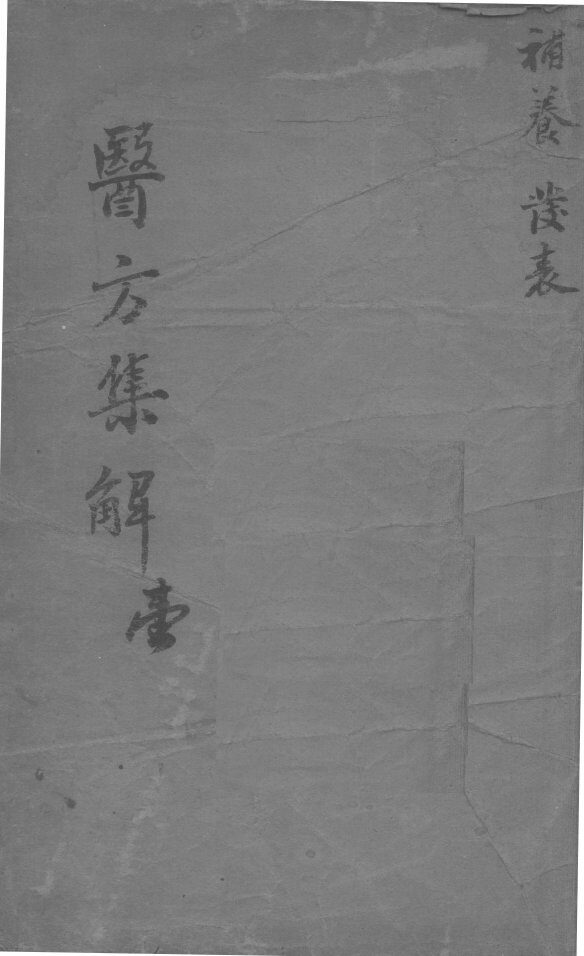 補養 發表
醫方集解 壹